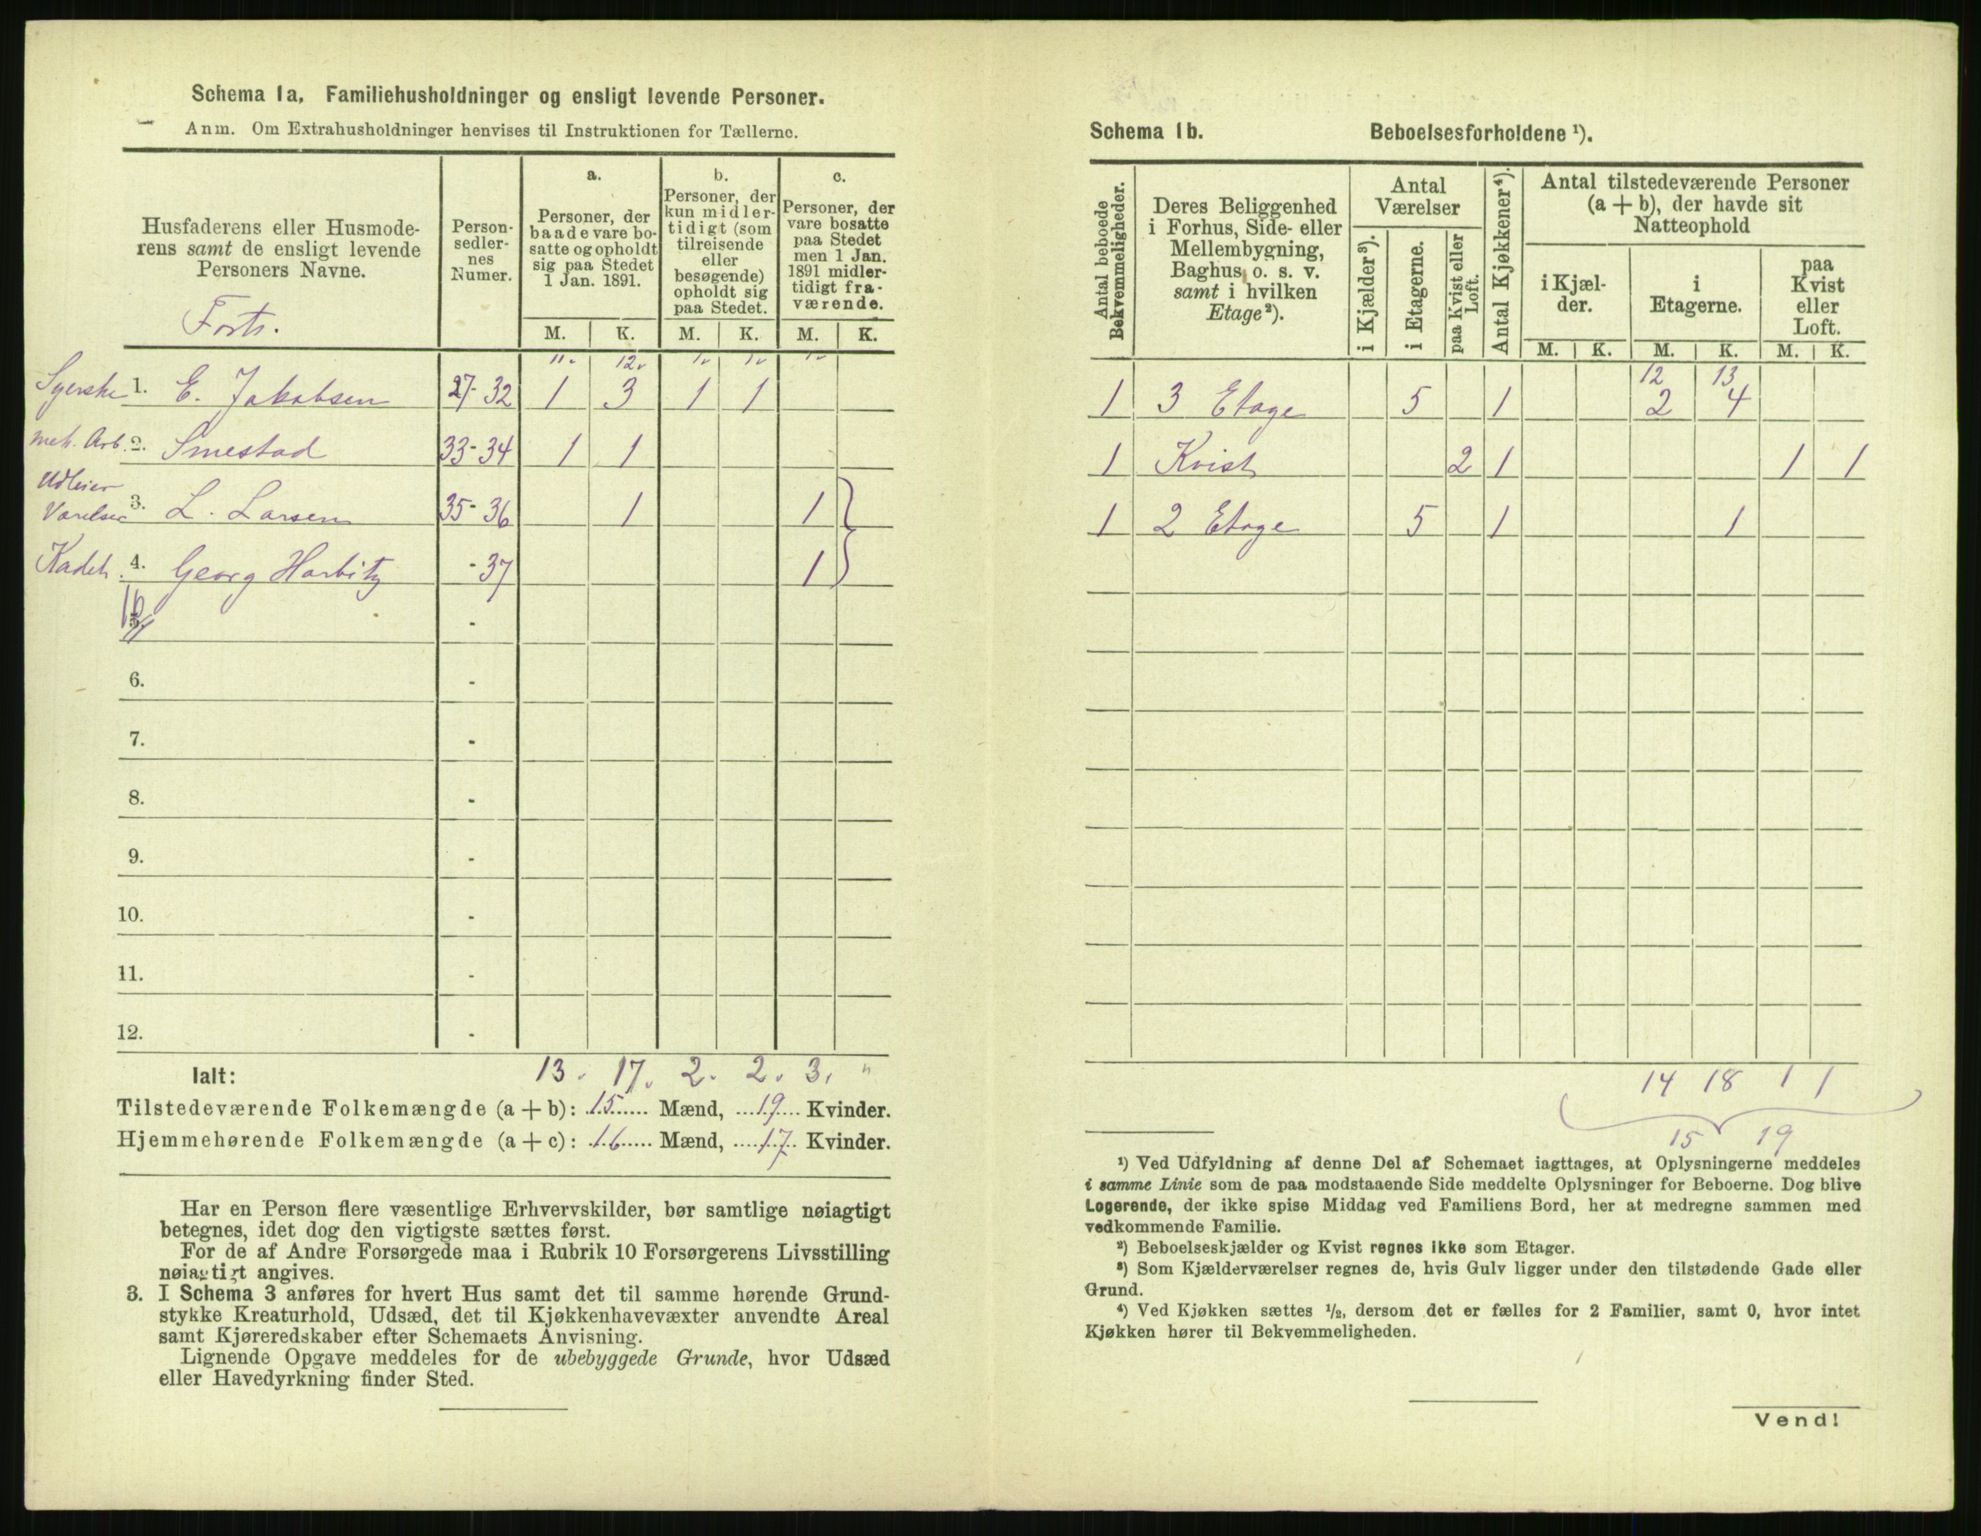 Schema 1a. Familiehusholdninger og ensligt levende Personer.
Anm. Om Extrahusholdninger henvises til Instruktionen for Tællerne.
Husfaderens eller Husmoderens samt de ensligt levende Personers Navne.
Forts.
Personsedlernes Numer.
a. Personer, der baade vare bosatte og opholdt sig paa Stedet 1 Jan. 1891.
b. Personer, der kun midlertidigt (som tilreisende eller besøgende) opholdt sig paa Stedet.
c. Personer, der vare bosatte paa Stedet men 1 Jan. 1891 midlertidigt fraværende.
M. K. M. K. M. K.
11. 12. 1. 1. 1.
Syerske 1. E. Jakobsen 27-32 1 3 1 1
mek. Arb. 2. Smestad 33-34 1 1
Udleier
Værelser 3. L. Larsen 35-36 1 1
Kadet. 4. Georg Harbitz -37 1
16
5. -
6. -
7. -
8. -
9. -
10. -
11. -
12. -
Ialt: 13. 17. 2. 2. 3. "
Tilstedeværende Folkemængde (a + b): 15 Mænd, 19 Kvinder.
Hjemmehørende Folkemængde (a + c): 16 Mænd, 17 Kvinder.
Har en Person flere væsentlige Erhvervskilder, bør samtlige nøiagtigt
betegnes, idet dog den vigtigste sættes først.
For de af Andre Forsørgede maa i Rubrik 10 Forsørgerens Livsstilling
nøiagtigt angives.
3. I Schema 3 anføres for hvert Hus samt det til samme hørende Grund-
stykke Kreaturhold, Udsæd, det til Kjøkkenhavevæxter anvendte Areal
samt Kjøreredskaber efter Schemaets Anvisning.
Lignende Opgave meddeles for de ubebyggede Grunde, hvor Udsæd
eller Havedyrkning finder Sted.
Schema 1b. Beboelsesforholdene ¹).
Antal beboede Bekvemmeligheder.
Deres Beliggenhed i Forhus, Side- eller Mellembygning, Baghus o. s. v. samt i hvilken Etage²).
Antal Værelser
i Kjælder³).
i Etagerne.
paa Kvist eller Loft.
Antal Kjøkkener⁴).
Antal tilstedeværende Personer (a + b), der havde sit Natteophold
i Kjælder.
i Etagerne.
paa Kvist eller Loft.
M. K. M. K. M. K.
12 13
1 3 Etage 5 1 2 4
1 Kvist 2 1 1 1
1 2 Etage 5 1 1
14 18 1 1
15 19
¹) Ved Udfyldning af denne Del af Schemaet iagttages, at Oplysningerne meddeles
i samme Linie som de paa modstaaende Side meddelte Oplysninger for Beboerne. Dog blive
Logerende, der ikke spise Middag ved Familiens Bord, her at medregne sammen med
vedkommende Familie.
²) Beboelseskjælder og Kvist regnes ikke som Etager.
³) Som Kjælderværelser regnes de, hvis Gulv ligger under den tilstødende Gade eller
Grund.
⁴) Ved Kjøkken sættes ½, dersom det er fælles for 2 Familier, samt 0, hvor intet
Kjøkken hører til Bekvemmeligheden.
Vend!